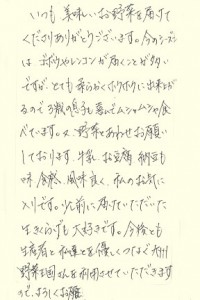 いつも美味しいお野菜を届けて
くださりありがとうございます。今のシーズン
は、ゴボウやレンコンが届くことが多い
ですが、とても柔らかくホクホクに出来上が
るので3歳の息子も喜んでムシャムシャ食
べています。又、野菜とあわせお願い
しております、牛乳、お豆腐、納豆も
味、食感、風味良く、私のお気に
入りです。以前に届けていただいた
生きくらげも大好きです。今後とも
生産者と私達とを優しくつなぐ大地
野菜王国さんを利用させていただきます
ので、よろしくお願